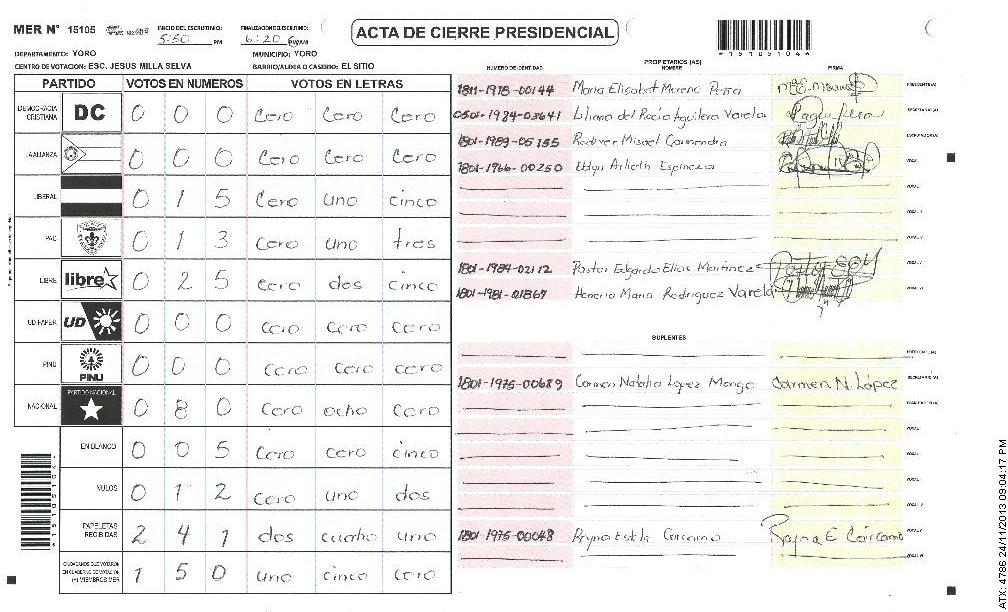 MER N° 15105 INICIO DEL ESCRUTINIO: 5:50 PM FINALIZACION DEL ESCRUTINIO: 6:20
ACTA DE CIERRE PRESIDENCIAL
*15105104*
DEPARTAMENTO: YORO MUNICIPIO: YORO
CENTRO DE VOTACION: ESC. JESUS MILLA SELVA BARRIO/ALDEA O CASERIO: EL SITIO
PARTIDO VOTOS EN NUMEROS VOTOS EN LETRAS
DEMOCRACIA CRISTIANA DC 0 0 0 Cero Cero Cero
LA ALIANZA 0 0 0 Cero Cero Cero
LIBERAL 0 1 5 Cero uno cinco
PAC 0 1 3 Cero uno tres
LIBRE libre 0 2 5 Cero dos cinco
UD-FAPER UD 0 0 0 Cero Cero Cero
PINU PINU 0 0 0 Cero Cero Cero
NACIONAL PARTIDO NACIONAL 0 8 0 Cero ocho Cero
EN BLANCO 0 0 5 Cero cero cinco
NULOS 0 1 2 Cero uno dos
PAPELETAS RECIBIDAS 2 4 1 dos cuatro uno
CIUDADANOS QUE VOTARON
(+) MIEMBROS MER 1 5 0 uno cinco Cero
PROPIETARIOS (AS)
NUMERO DE IDENTIDAD NOMBRE FIRMA
1811-1978-00144 Maria Elisabet Moreno PRESIDENTE (A)
0501-1984-03641 Liliana del Rocio Aguilera Varela SECRETARIO (A)
1801-1989-05155 Misael
1801-1966-00250 Espinoza
1801-1984-02112 Pastor Edgardo Elias Martinez
1801-1981-01867 Honeria Maria Rodriguez Varela
SUPLENTES
1801-1975-00689 Carmen Natalia Lopez Monge Carmen N. López SECRETARIO (A)
1801-1975-00048 Reyna Estela Carcamo Reyna E Cárcamo
ATX: 4786 24/11/2013 09:04:17 PM